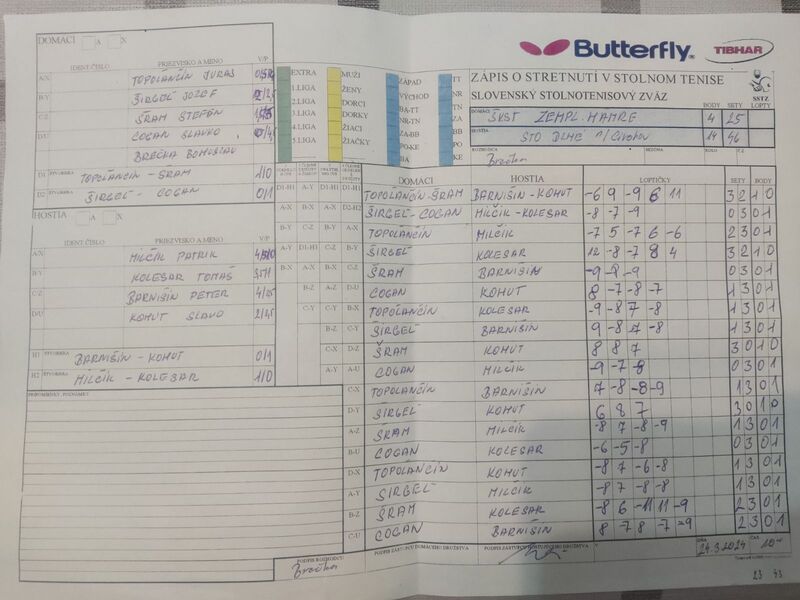 DOMÁCI A X
IDENT.ČÍSLO PRIEZVISKO A MENO V/P
A/X TOPOĽANČIN JURAJ
B/Y ŠIRGEĽ JOZEF
C/Z ŠRAM ŠTEFAN
D/U COGAN SLAVKO
BREČKA BOHUSLAV
D1 ŠTVORHRA TOPOĽANČIN - ŠRAM 1/0
D2 ŠTVORHRA ŠIRGEĽ - COGAN 0/1
HOSTIA A X
IDENT.ČÍSLO PRIEZVISKO A MENO V/P
A/X MILČÍK PATRIK
B/Y KOLESAR TOMAŠ
C/Z BARNIŠIN PETER
D/U KOHUT SLAVO
H1 ŠTVORHRA BARNIŠIN - KOHUT 0/1
H2 ŠTVORHRA MILČÍK - KOLESAR 1/0
PRIPOMIENKY, POZNÁMKY
EXTRA MUŽI
1.LIGA ŽENY
2.LIGA DORCI
3.LIGA DORKY
4.LIGA ŽIACI
5.LIGA ŽIAČKY
ZÁPAD TT
VÝCHOD NR
BA-TT TN
NR-TN ZA
ZA-BB BB
PO-KE PO
BA KE
Butterfly TIBHAR
ZÁPIS O STRETNUTÍ V STOLNOM TENISE
SLOVENSKÝ STOLNOTENISOVÝ ZVÄZ
SSTZ
DOMÁCI BODY SETY
ŠKST ZEMPL. HAMRE 4 25
HOSTIA
STO DLHÉ n/Cirochou 14 46
ROZHODCA SEZÓNA KOLO Č.Z.
Brečka
DOMÁCI HOSTIA LOPTIČKY SETY BODY
D1-H1 A-Y D1-H1 D1-H1 TOPOĽANČIN-ŠRAM BARNIŠIN-KOHUT -6 9 -9 6 11 3 2 1 0
A-X B-X A-X D2-H2 ŠIRGEĽ-COGAN MILČÍK-KOLESAR -8 -7 -9 0 3 0 1
B-Y C-Z B-Y A-X TOPOĽANČIN MILČÍK -7 5 -7 6 -6 2 3 0 1
A-Y D1-H1 C-Z B-Y ŠIRGEĽ KOLESAR 12 -8 -7 8 4 3 2 1 0
B-X A-X B-X C-Z ŠRAM BARNIŠIN -9 -8 -9 0 3 0 1
B-Z A-Z D-U COGAN KOHUT 8 -7 -8 -7 1 3 0 1
C-Y B-X TOPOĽANČIN KOLESAR -9 -8 7 -8 1 3 0 1
B-Z C-Y ŠIRGEĽ BARNIŠIN 9 -8 -7 -8 1 3 0 1
C-X D-Z ŠRAM KOHUT 8 8 7 3 0 1 0
A-Y A-U COGAN MILČÍK -9 -7 -8 0 3 0 1
C-X TOPOĽANČIN BARNIŠIN 7 -8 -8 -9 1 3 0 1
D-Y ŠIRGEĽ KOHUT 6 8 7 3 0 1 0
A-Z ŠRAM MILČÍK -8 7 -8 -9 1 3 0 1
B-U COGAN KOLESAR -6 -5 -8 0 3 0 1
D-X TOPOĽANČIN KOHUT -8 7 -6 -8 1 3 0 1
A-Y ŠIRGEĽ MILČÍK -8 7 -8 -8 1 3 0 1
B-Z ŠRAM KOLESAR -8 6 -11 11 -9 2 3 0 1
C-U COGAN BARNIŠIN 8 -7 8 -7 -9 2 3 0 1
PODPIS ROZHODCU
Brečka
PODPIS ZÁSTUPCU DOMÁCEHO DRUŽSTVA PODPIS ZÁSTUPCU HOSŤUJÚCEHO DRUŽSTVA V DŇA ČAS
24.3.2024 10
23 43